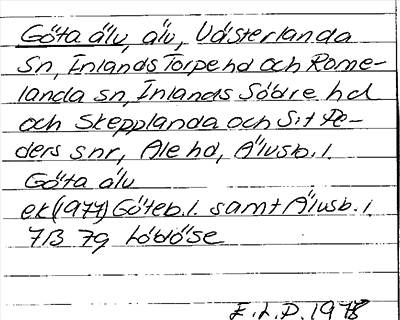 Göta älv, älv, Västerlanda
sn, Inlands Torpe hd och Rome-
landa sn, Inlands Södre hd
och Skepplanda och S:t Pe-
ders snr, Ale hd, Älvsb. l.
Göta älv
ek (1977) Göteb. l. samt Älvsb. l.
7B 7g Lödöse
E. L. P. 1978